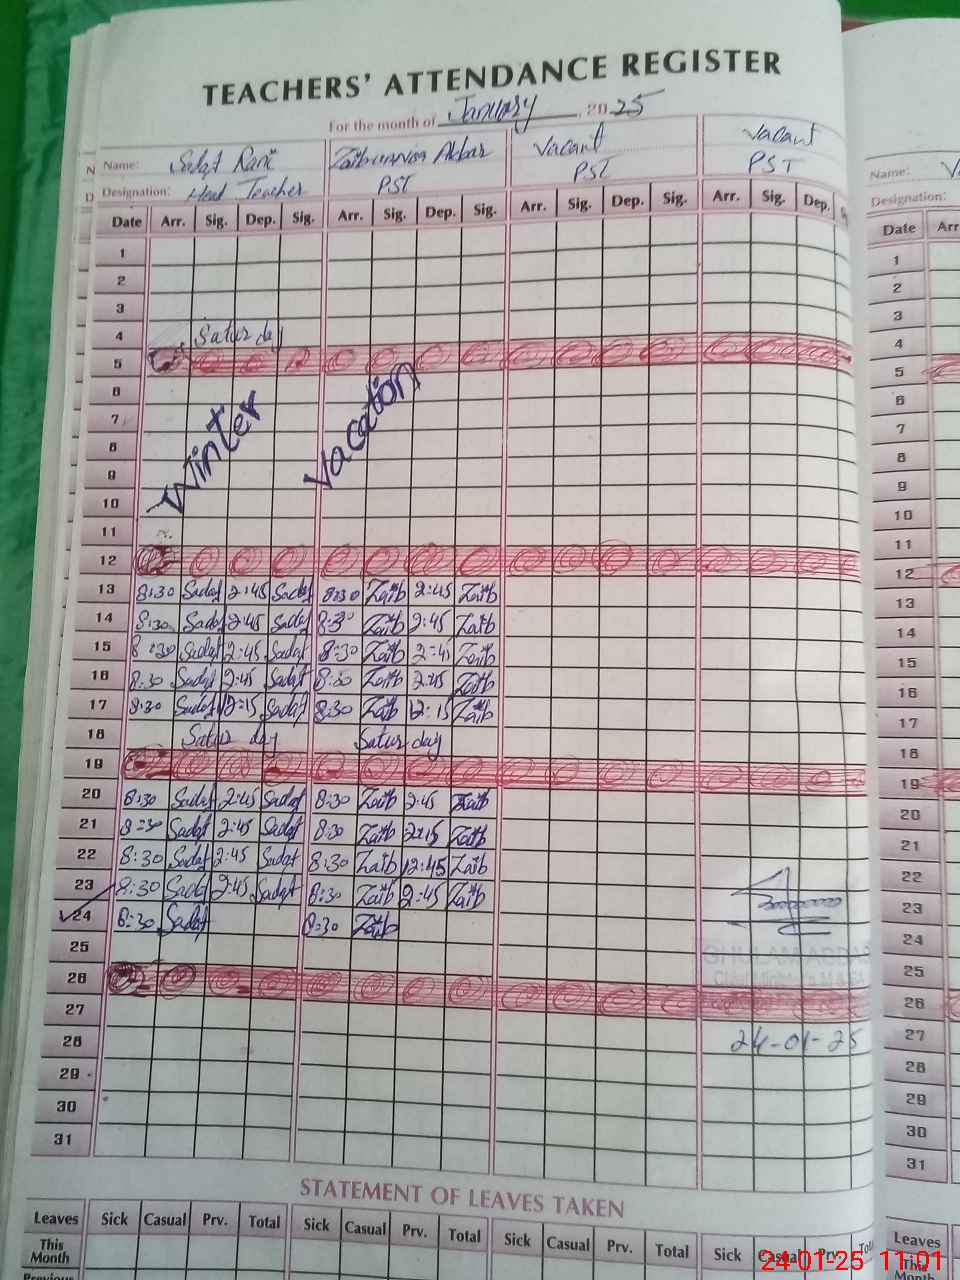 TEACHERS' ATTENDANCE REGISTER
For the month of January 2025
Name: Sadaf Rani Zaibunnisa Akbar Vacant Vacant
Designation: Head Teacher PST PST PST
Date Arr. Sig. Dep. Sig. Arr. Sig. Dep. Sig. Arr. Sig. Dep. Sig. Arr. Sig. Dep.
1
2
3
4 Saturday
5
6
7
8
9
10
Winter Vacation
11
12
13 8:30 Sadaf 2:45 Sadaf 8:30 Zaib 2:45 Zaib
14 8:30 Sadaf 2:45 Sadaf 8:30 Zaib 2:45 Zaib
15 8:30 Sadaf 2:45 Sadaf 8:30 Zaib 2:45 Zaib
16 8:30 Sadaf 2:45 Sadaf 8:30 Zaib 2:45 Zaib
17 8:30 Sadaf 12:15 Sadaf 8:30 Zaib 12:15 Zaib
18 Saturday Saturday
19
20 8:30 Sadaf 2:45 Sadaf 8:30 Zaib 2:45 Zaib
21 8:30 Sadaf 2:45 Sadaf 8:30 Zaib Zaib
22 8:30 Sadaf 2:45 Sadaf 8:30 Zaib 12:45 Zaib
23 8:30 Sadaf 2:45 Sadaf 8:30 Zaib 2:45 Zaib
24 8:30 Sadaf 8:30 Zaib
25
26
27
28 24-01-25
29
30
31
GHULAM ABBAS
Chief Minister's M
STATEMENT OF LEAVES TAKEN
Leaves Sick Casual Prv. Total Sick Casual Prv. Total Sick Casual Prv. Total Sick Casual Prv.
This Month
Previous
Name:
Designation:
Date Arr
1
2
3
4
5
6
7
8
9
10
11
12
13
14
15
16
17
18
19
20
21
22
23
24
25
26
27
28
29
30
31
Leaves
This
Month
24-01-25 11:01